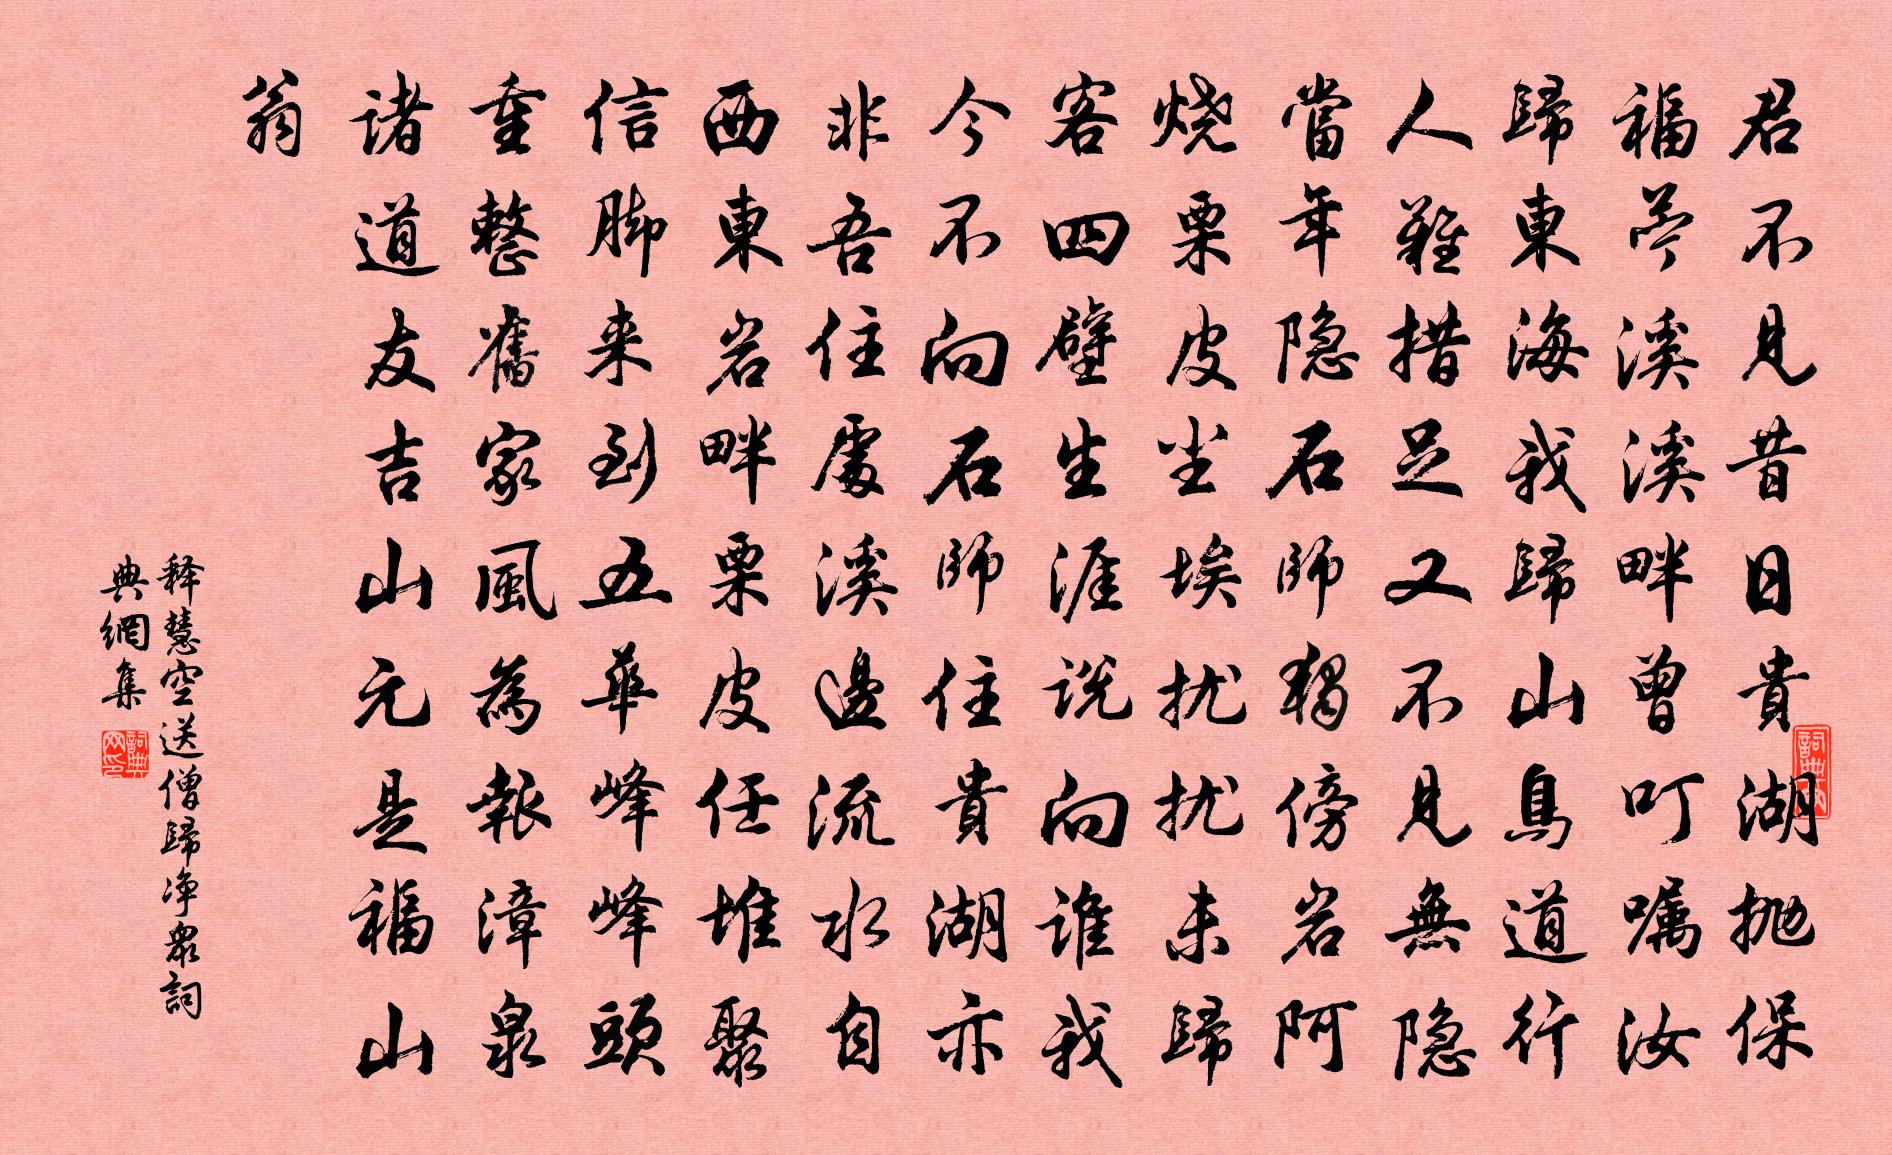 君不見昔日貴湖抛保
福溪溪畔曾叮嘱汝
歸東海我歸山鳥道行
人難措足又不見無隐
當年隐石師獨傍岩阿
烧栗皮尘埃扰扰未歸
客四壁生涯说向谁我
今不向石師住貴湖亦
非吾住處溪邊流水自
西東岩畔栗皮任堆聚
信脚来到五華峰峰頭
重整舊家風為報漳泉
诸道友吉山元是福山
翁
释慧空送僧歸净衆詞
典網集